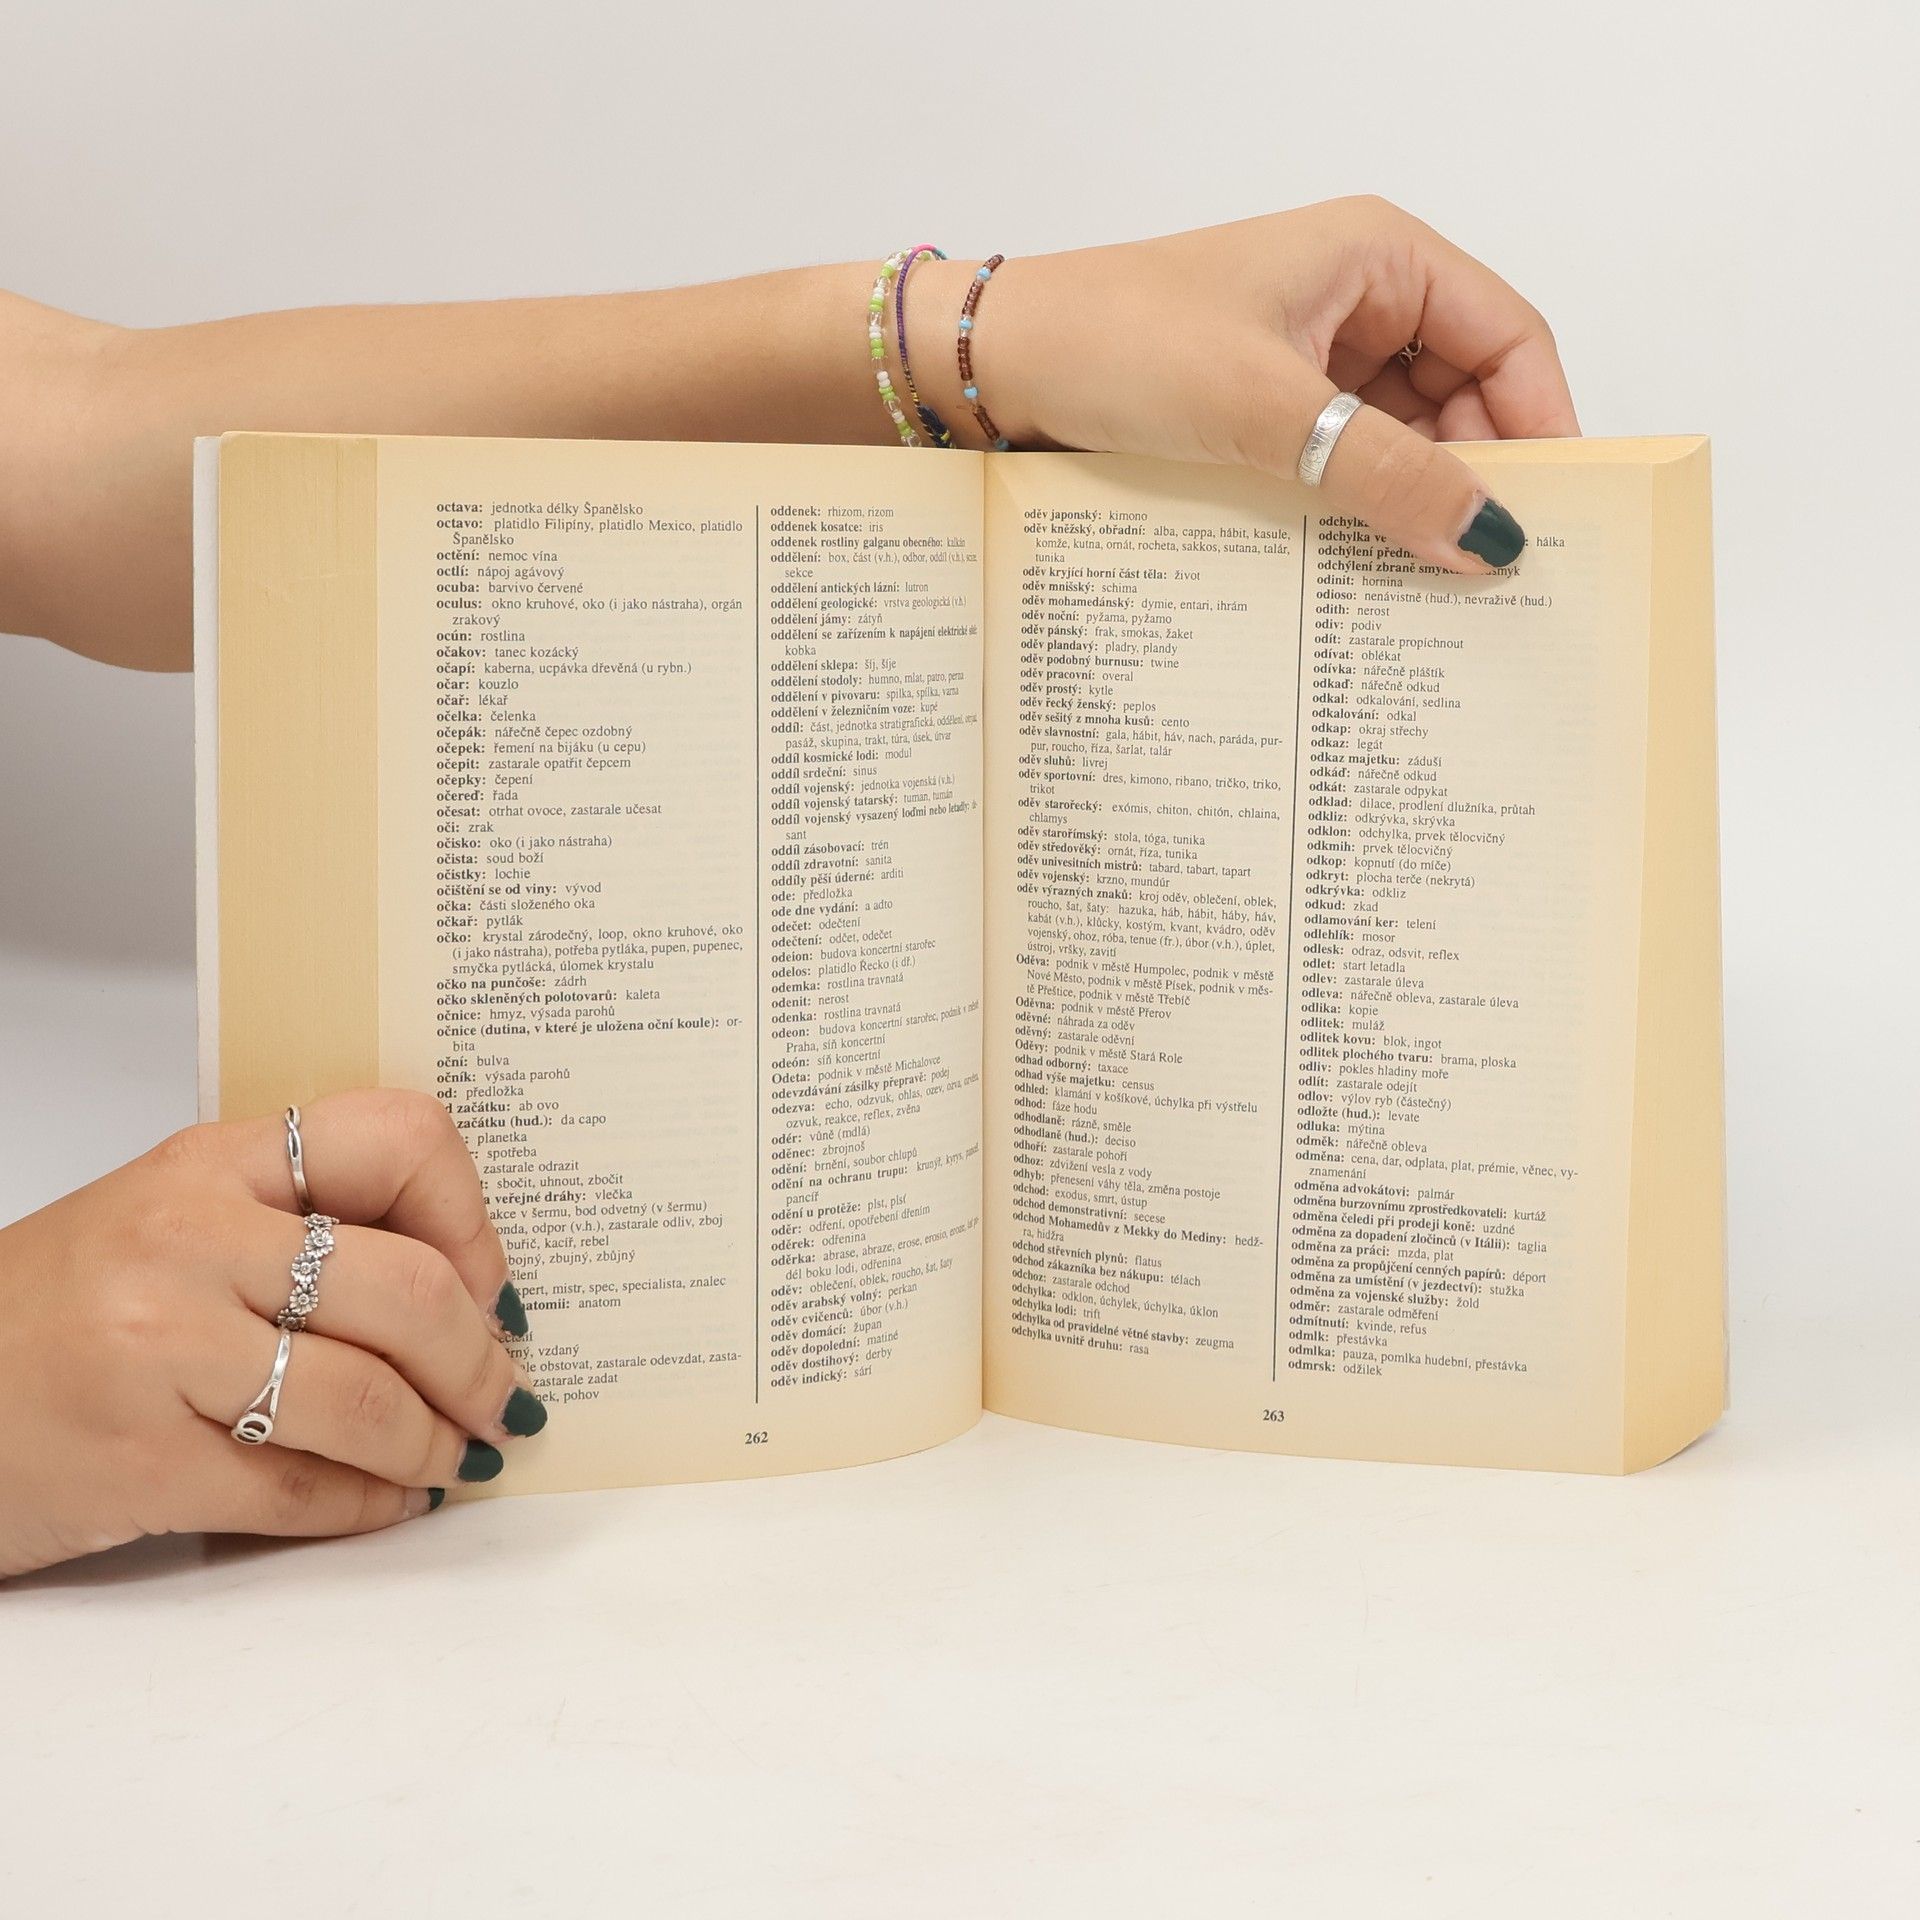 octava: jednotka délky Španělsko
octavo: platidlo Filipíny, platidlo Mexico, platidlo
Španělsko
octění: nemoc vína
octlí: nápoj agávový
ocuba: barvivo červené
oculus: okno kruhové, oko (i jako nástraha), orgán
zrakový
ocún: rostlina
očakov: tanec kozácký
očapí: kaberna, ucpávka dřevěná (u rybn.)
očar: kouzlo
očař: lékař
očelka: čelenka
očepák: nářečně čepec ozdobný
očepek: řemení na bijáku (u cepu)
očepit: zastarale opatřit čepcem
očepky: čepení
očereď: řada
očesat: otrhat ovoce, zastarale učesat
oči: zrak
očisko: oko (i jako nástraha)
očista: soud boží
očistky: lochie
očištění se od viny: vývod
očka: části složeného oka
očkař: pytlák
očko: krystal zárodečný, loop, okno kruhové, oko
(i jako nástraha), potřeba pytláka, pupen, pupenec,
smyčka pytlácká, úlomek krystalu
očko na punčoše: zádrh
očko skleněných polotovarů: kaleta
očnice: hmyz, výsada parohů
očnice (dutina, v které je uložena oční koule): or-
bita
oční: bulva
očník: výsada parohů
od: předložka
začátku: ab ovo
začátku (hud.): da capo
planetka
spotřeba
zastarale odrazit
sbočit, uhnout, zbočit
veřejné dráhy: vlečka
akce v šermu, bod odvetný (v šermu)
odpor (v.h.), zastarale odliv, zboj
buřič, kacíř, rebel
zbujný, zbůjný
mistr, spec, specialista, znalec
anatom
vzdaný
obstovat, zastarale odevzdat, zasta-
zastarale zadat
pohov
262
oddenek: rhizom, rizom
oddenek kosatce: iris
oddenek rostliny galganu obecného: kalkán
oddělení: box, část (v.h.), odbor, oddíl (v.h.),
sekce
oddělení antických lázní: lutron
oddělení geologické: vrstva geologická (v.h.)
oddělení jámy: zátyň
oddělení se zařízením k napájení elektrické sítě:
kobka
oddělení sklepa: šíj, šíje
oddělení stodoly: humno, mlat, patro, perna
oddělení v pivovaru: spilka, spílka, varna
oddělení v železničním voze: kupé
oddíl: část, jednotka stratigrafická, oddělení,
pasáž, skupina, trakt, túra, úsek, útvar
oddíl kosmické lodi: modul
oddíl srdeční: sinus
oddíl vojenský: jednotka vojenská (v.h.)
oddíl vojenský tatarský: tuman, tumán
oddíl vojenský vysazený loďmi nebo letadly: de-
sant
oddíl zásobovací: trén
oddíl zdravotní: sanita
oddíly pěší úderné: arditi
ode: předložka
ode dne vydání: a adto
odečet: odečtení
odečtení: odčet, odečet
odeion: budova koncertní starořec
odelos: platidlo Řecko (i dř.)
odemka: rostlina travnatá
odenit: nerost
odenka: rostlina travnatá
odeon: budova koncertní starořec, podnik v městě
Praha, síň koncertní
odeón: síň koncertní
Odeta: podnik v městě Michalovce
odevzdávání zásilky přepravě: podej
odezva: echo, odzvuk, ohlas, ozev, ozva,
ozvuk, reakce, reflex, zvěna
odér: vůně (mdlá)
oděnec: zbrojnoš
odění: brnění, soubor chlupů
odění na ochranu trupu: krunýř, kyrys,
pancíř
odění u protěže: plst, plsť
oděr: odření, opotřebení dřením
oděrek: odřenina
oděrka: abrase, abraze, erose, erosio, eroze,
díl boku lodi, odřenina
oděv: oblečení, oblek, roucho, šat, šaty
oděv arabský volný: perkan
oděv cvičenců: úbor (v.h.)
oděv domácí: župan
oděv dopolední: matiné
oděv dostihový: derby
oděv indický: sárí
oděv japonský: kimono
oděv kněžský, obřadní: alba, cappa, hábit, kasule,
komže, kutna, ornát, rocheta, sakkos, sutana, talár,
tunika
oděv kryjící horní část těla: život
oděv mnišský: schima
oděv mohamedánský: dymie, entari, ihrám
oděv noční: pyžama, pyžamo
oděv pánský: frak, smokas, žaket
oděv plandavý: pladry, plandy
oděv podobný burnusu: twine
oděv pracovní: overal
oděv prostý: kytle
oděv řecký ženský: peplos
oděv sešitý z mnoha kusů: cento
oděv slavnostní: gala, hábit, háv, nach, paráda, pur-
pur, roucho, říza, šarlat, talár
oděv sluhů: livrej
oděv sportovní: dres, kimono, ribano, tričko, triko,
trikot
oděv starořecký: exómis, chiton, chitón, chlaina,
chlamys
oděv starořímský: stola, tóga, tunika
oděv středověký: ornát, říza, tunika
oděv univesitních mistrů: tabard, tabart, tapart
oděv vojenský: krzno, mundúr
oděv výrazných znaků: kroj oděv, oblečení, oblek,
roucho, šat, šaty: hazuka, háb, hábit, háby, háv,
kabát (v.h.), klůcky, kostým, kvant, kvádro, oděv
vojenský, ohoz, róba, tenue (fr.), úbor (v.h.), úplet,
ústroj, vršky, zavití
Oděva: podnik v městě Humpolec, podnik v městě
Nové Město, podnik v městě Písek, podnik v měs-
tě Přeštice, podnik v městě Třebíč
Oděvna: podnik v městě Přerov
oděvné: náhrada za oděv
oděvný: zastarale oděvní
Oděvy: podnik v městě Stará Role
odhad odborný: taxace
odhad výše majetku: census
odhled: klamání v košíkové, úchylka při výstřelu
odhod: fáze hodu
odhodlaně: rázně, směle
odhodlaně (hud.): deciso
odhoří: zastarale pohoří
odhoz: zdvižení vesla z vody
odhyb: přenesení váhy těla, změna postoje
odchod: exodus, smrt, ústup
odchod demonstrativní: secese
odchod Mohamedův z Mekky do Mediny: hedž-
ra, hidžra
odchod střevních plynů: flatus
odchod zákazníka bez nákupu: télach
odchoz: zastarale odchod
odchylka: odklon, úchylek, úchylka, úklon
odchylka lodi: trift
odchylka od pravidelné větné stavby: zeugma
odchylka uvnitř druhu: rasa
263
odchylka ve : hálka
odchýlení
odchýlení zbraně
odinit: hornina
odioso: nenávistně (hud.), nevraživě (hud.)
odith: nerost
odiv: podiv
odít: zastarale propíchnout
odívat: oblékat
odívka: nářečně pláštík
odkaď: nářečně odkud
odkal: odkalování, sedlina
odkalování: odkal
odkap: okraj střechy
odkaz: legát
odkaz majetku: záduší
odkáď: nářečně odkud
odkát: zastarale odpykat
odklad: dilace, prodlení dlužníka, průtah
odkliz: odkrývka, skrývka
odklon: odchylka, prvek tělocvičný
odkmih: prvek tělocvičný
odkop: kopnutí (do míče)
odkryt: plocha terče (nekrytá)
odkrývka: odkliz
odkud: zkad
odlamování ker: telení
odlehlík: mosor
odlesk: odraz, odsvit, reflex
odlet: start letadla
odlev: zastarale úleva
odleva: nářečně obleva, zastarale úleva
odlika: kopie
odlitek: muláž
odlitek kovu: blok, ingot
odlitek plochého tvaru: brama, ploska
odliv: pokles hladiny moře
odlít: zastarale odejít
odlov: výlov ryb (částečný)
odložte (hud.): levate
odluka: mýtina
odměk: nářečně obleva
odměna: cena, dar, odplata, plat, prémie, věnec, vy-
znamenání
odměna advokátovi: palmár
odměna burzovnímu zprostředkovateli: kurtáž
odměna čeledi při prodeji koně: uzdné
odměna za dopadení zločinců (v Itálii): taglia
odměna za práci: mzda, plat
odměna za propůjčení cenných papírů: déport
odměna za umístění (v jezdectví): stužka
odměna za vojenské služby: žold
odměr: zastarale odměření
odmítnutí: kvinde, refus
odmlk: přestávka
odmlka: pauza, pomlka hudební, přestávka
odmrsk: odžilek